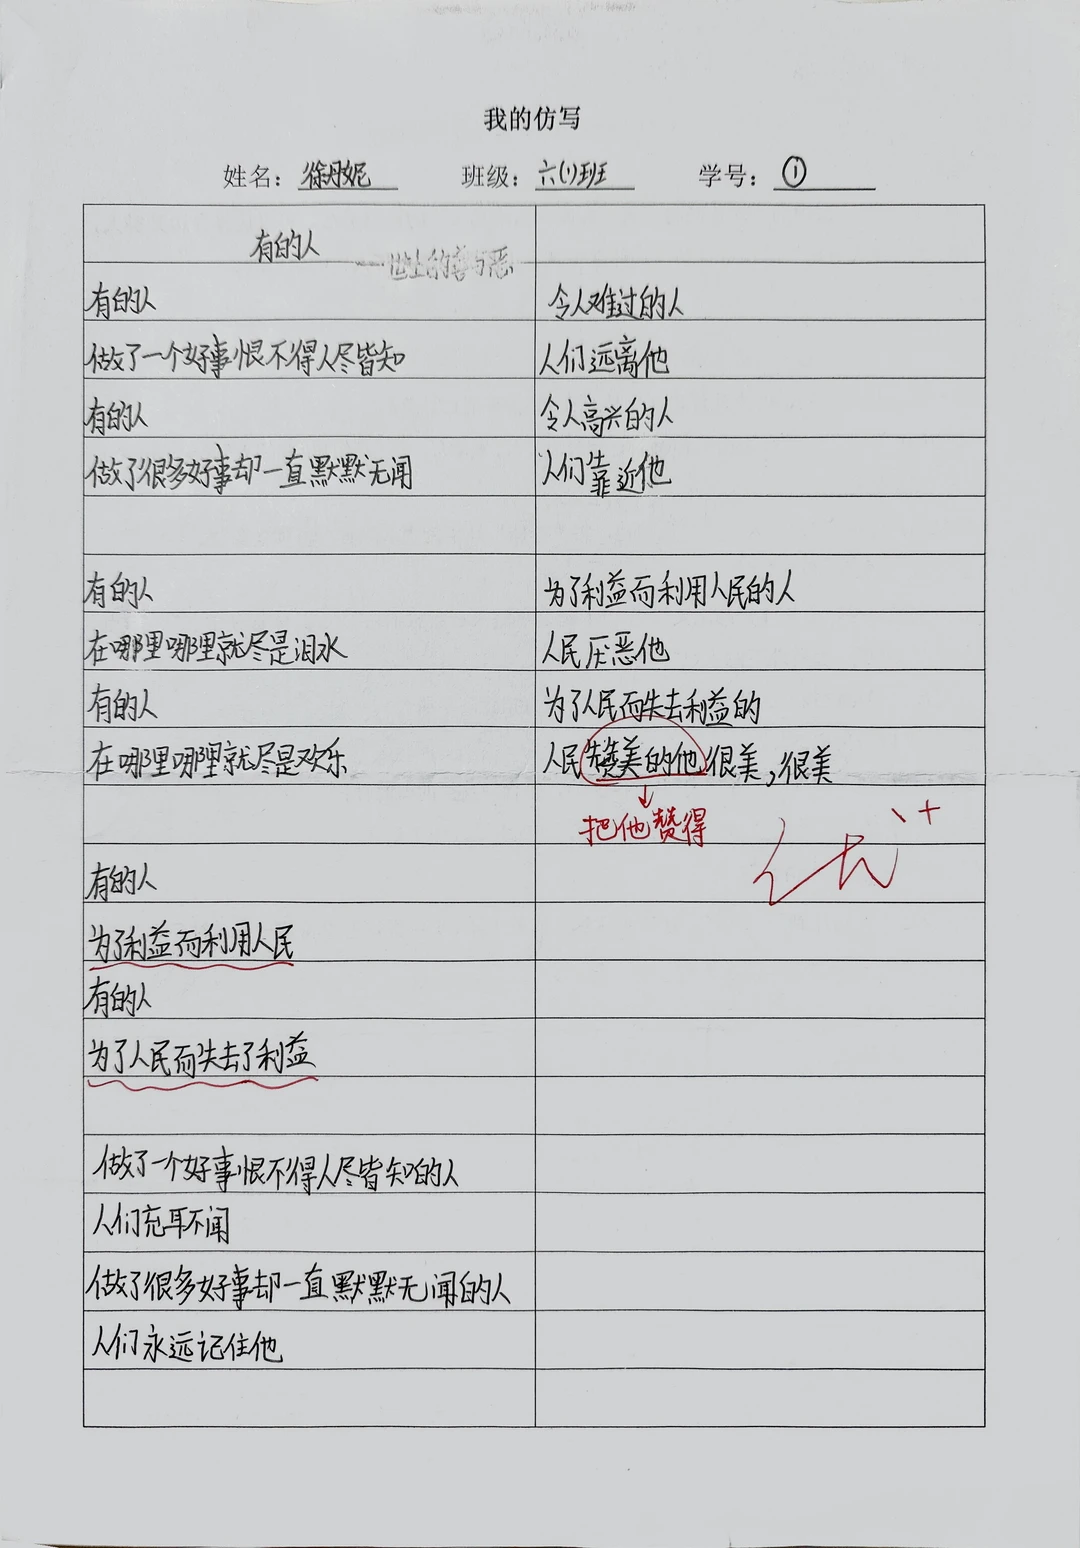 我的仿写
姓名：徐丹妮 班级：六(1)班 学号：①
有的人
——世上的善与恶
有的人
做了一个好事恨不得人尽皆知
有的人
做了很多好事却一直默默无闻
有的人
在哪里哪里就尽是泪水
有的人
在哪里哪里就尽是欢乐
有的人
为了利益而利用人民
有的人
为了人民而失去了利益
做了一个好事恨不得人尽皆知的人
人们充耳不闻
做了很多好事却一直默默无闻的人
人们永远记住他
令人难过的人
人们远离他
令人高兴的人
人们靠近他
为了利益而利用人民的人
人民厌恶他
为了人民而失去利益的
人民赞美的他很美，很美
把他赞得
优+